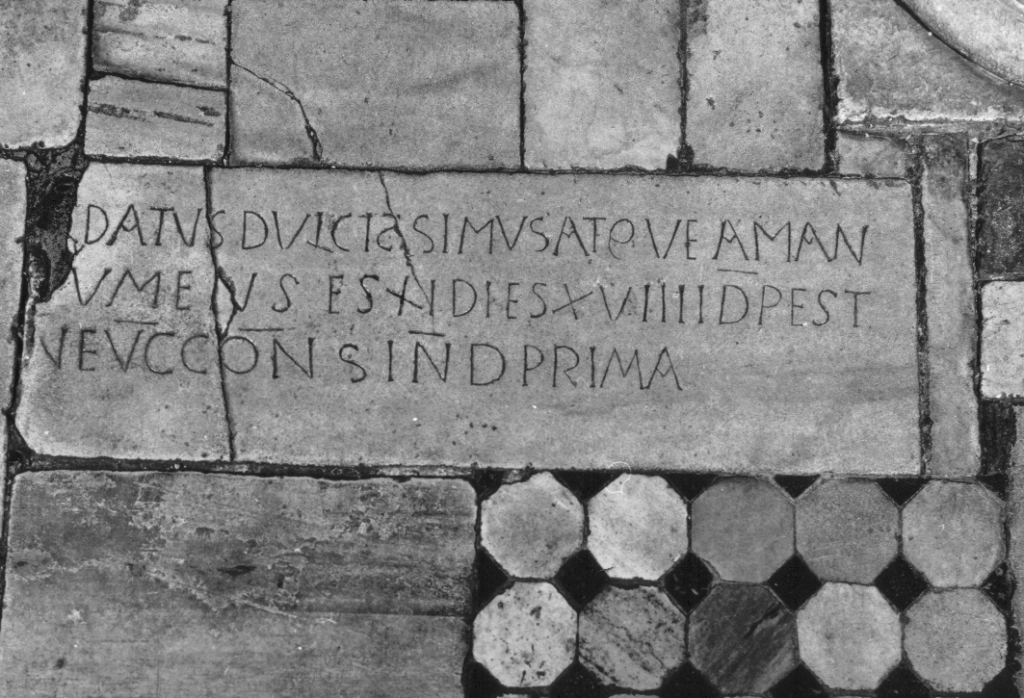 DATUS DVLCISSIMVS ATQVE AMAN
VMENVS ES XI DIES XVIIII D P EST
VEVCCONSINDPRIMA